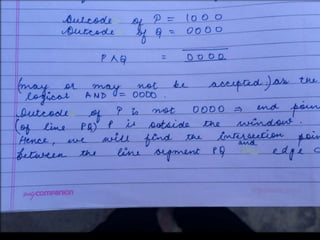 Outcode of P = 1000
Outcode of Q = 0000
P ∧ Q = 0000
(may or may not be accepted) as the
logical AND = 0000.
Outcode of P is not 0000 ⇒ end poin
(of line PQ) P is outside the window.
Hence, we will find the intersection poin
between the line segment PQ and edge
mycompanion